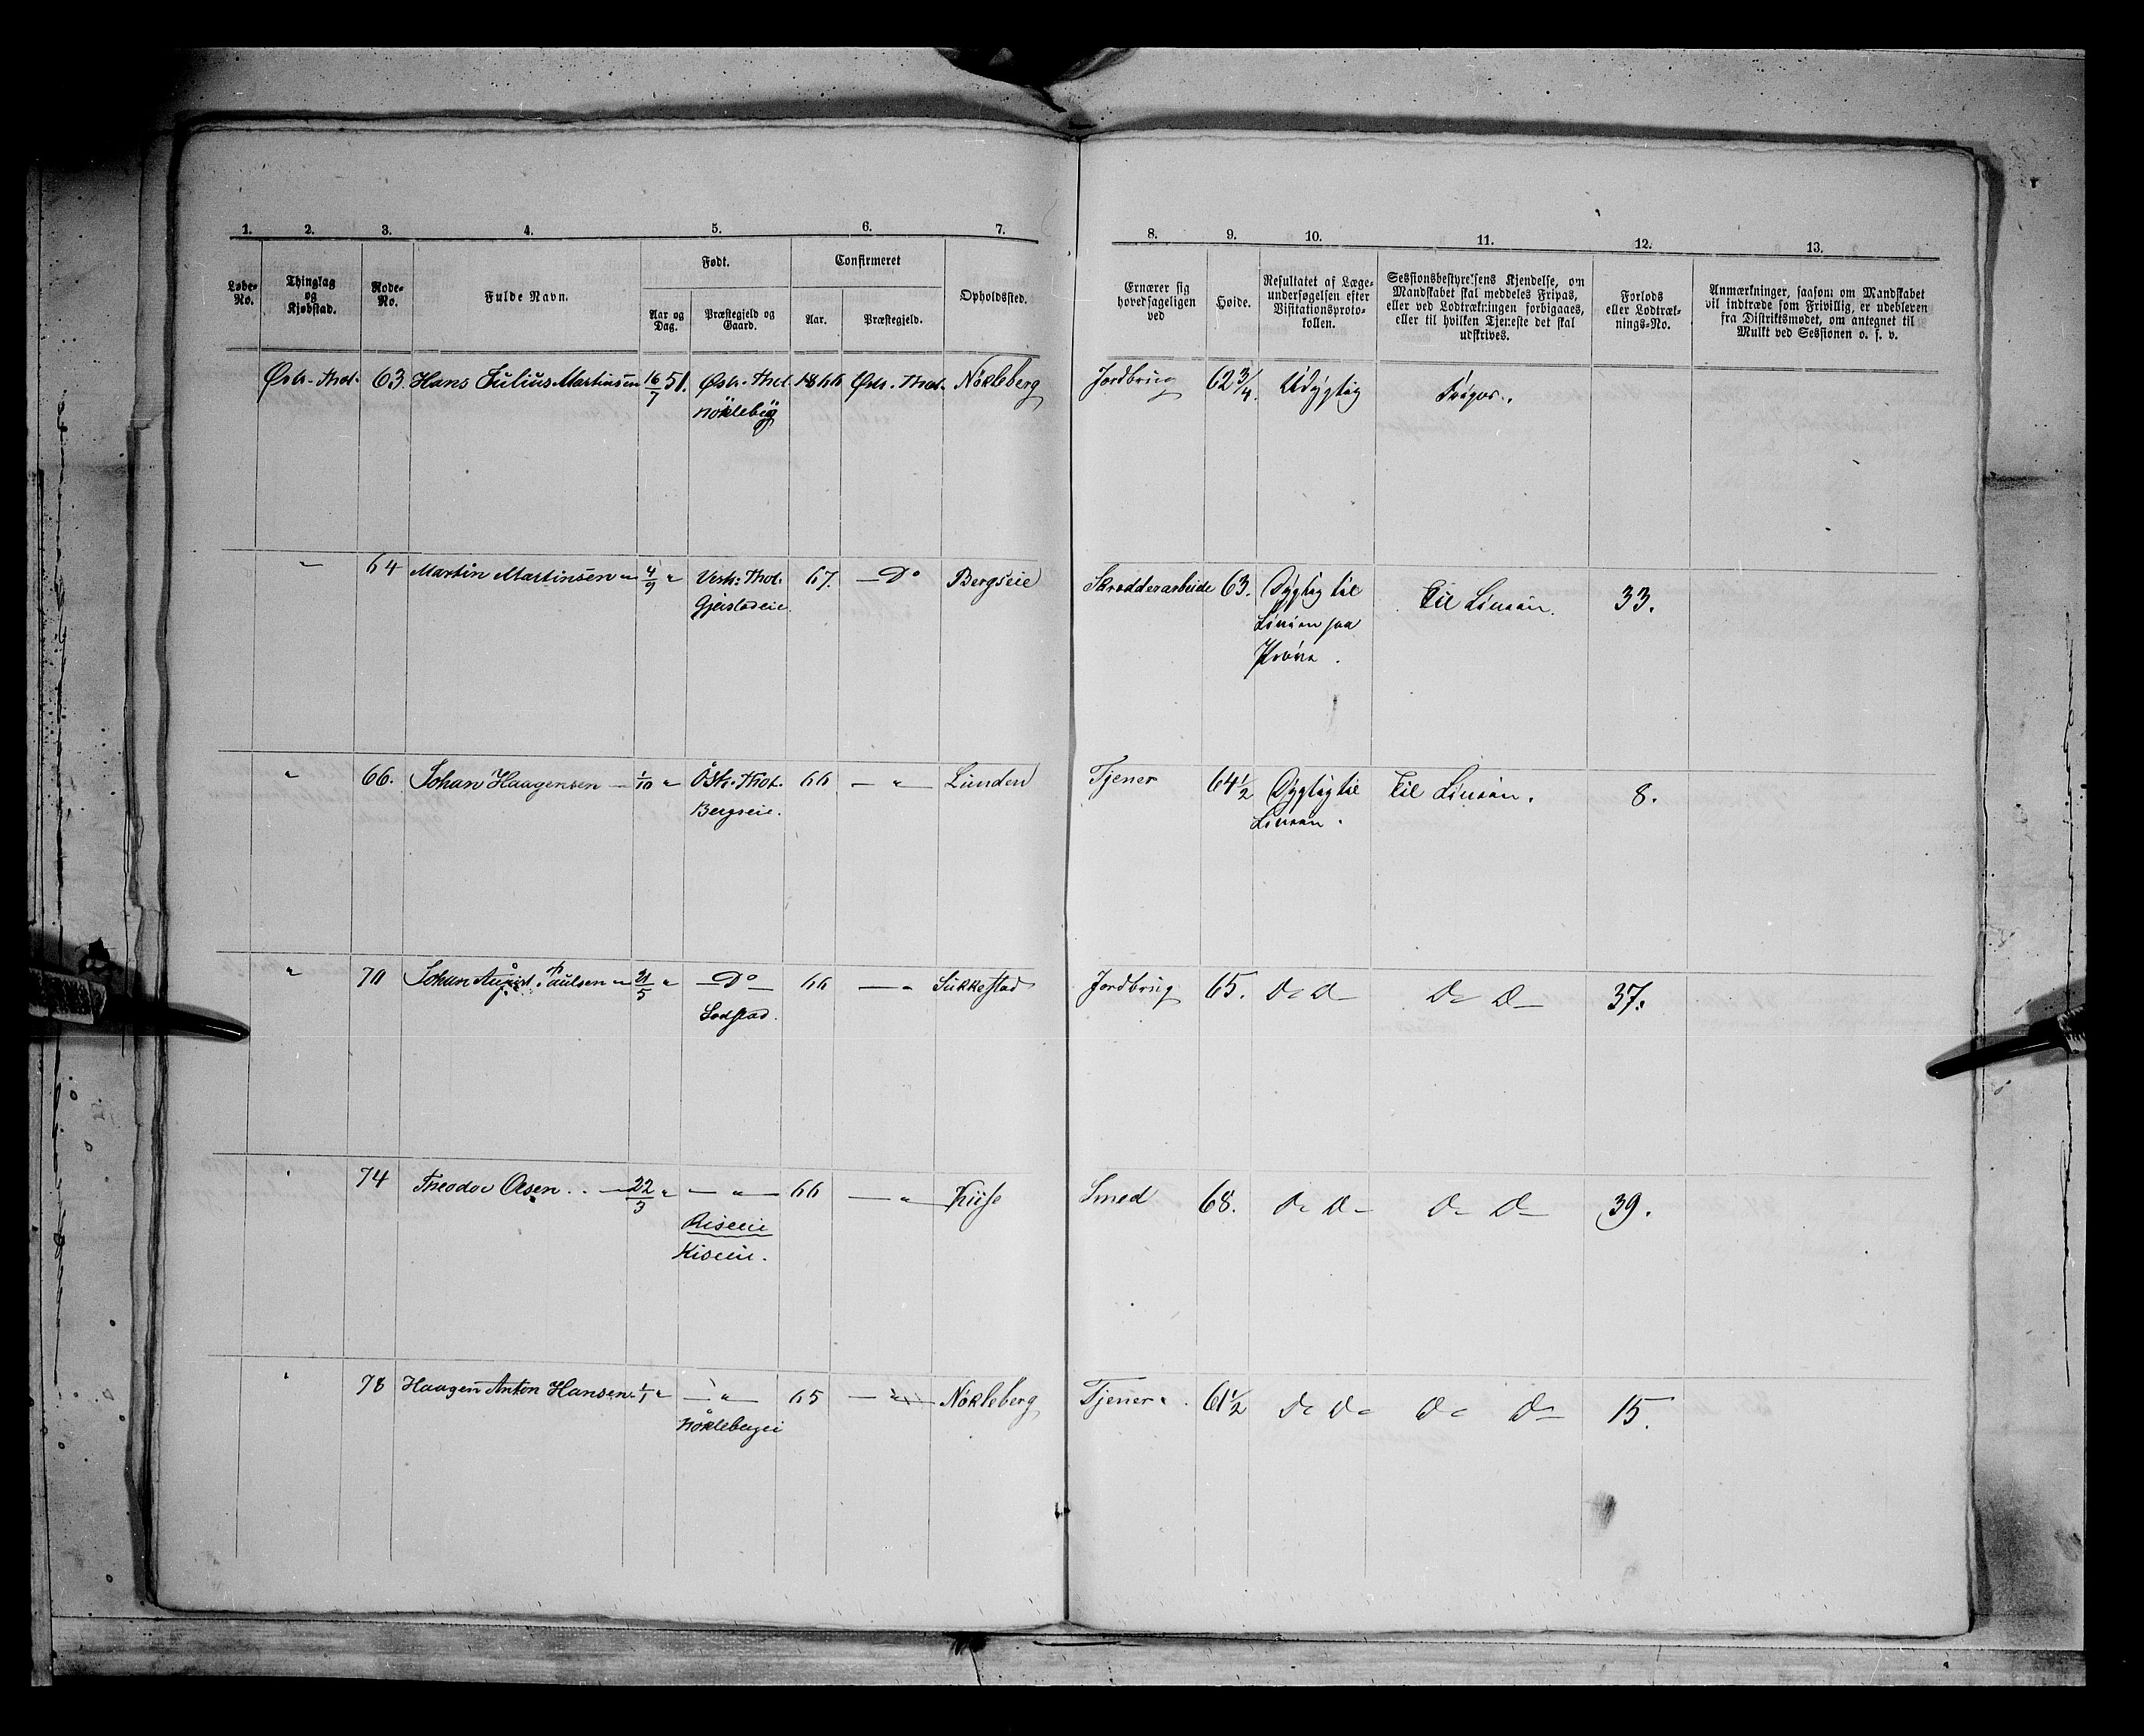 1. 2. 3. 4. 5. 6. 7. 8. 9. 10. 11. 12. 13.
Løbe-
No.
Thinglag
og
Kjøbstad.
Rode-
No.
Fulde Navn.
Født.
Aar og
Dag.
Præstegjeld og
Gaard.
Confirmeret
Aar.
Præstegjeld.
Opholdssted.
Ernærer sig
hovedsageligen
ved
Høide.
Resultatet af Læge-
undersøgelsen efter
Visitationsproto-
kollen.
Sessionsbestyrelsens Kjendelse, om
Mandskabet skal meddeles Fripas,
eller ved Lodtrækningen forbigaaes,
eller til hvilken Tjeneste det skal
udskrives.
Forlods
eller Lodtræk-
nings-No.
Anmærkninger, saasom om Mandskabet
vil indtræde som Frivillig, er udebleven
fra Distriktsmødet, om antegnet til
Mulkt ved Sessionen o. s. v.
Østr-Thot. 63. Hans Julius Martinsen 16/7 51. Østr-Thot. 1866 Østr. Thot. Nökleberg Jordbrug 62 3/4. Udygtig Fripas.
Nökleberg
" 64 Martin Martinsen " 4/9 " Vestr: Thot. 67. — Do Bergseie Skrædderarbeide 63. Dygtig til Til Linien. 33.
Gjeistadeie. Linien paa
Prøve.
" 66. Johan Haagensen — 1/10 " Östr. Thot. 66 — " — Lunden Tjener 64 1/2 Dygtig til Til Linien. 8.
Bergseie. Linien.
" 70 Johan August Paulsen " 21/5 " — Do — 66 — " Sukkestad Jordbrug 65. Do Do — Do Do — 37.
" 74 Theodor Olsen .. — 22/3 " — " — 66 — " Kiise Smed 68. Do Do — Do Do — 39.
Riseeie
Kiseeie.
" 78 Haagen Anton Hansen. 1/1 " — " 65 — " — Nökleberg Tjener. 61 1/2 Do Do Do Do — 15.
Nöklebergei